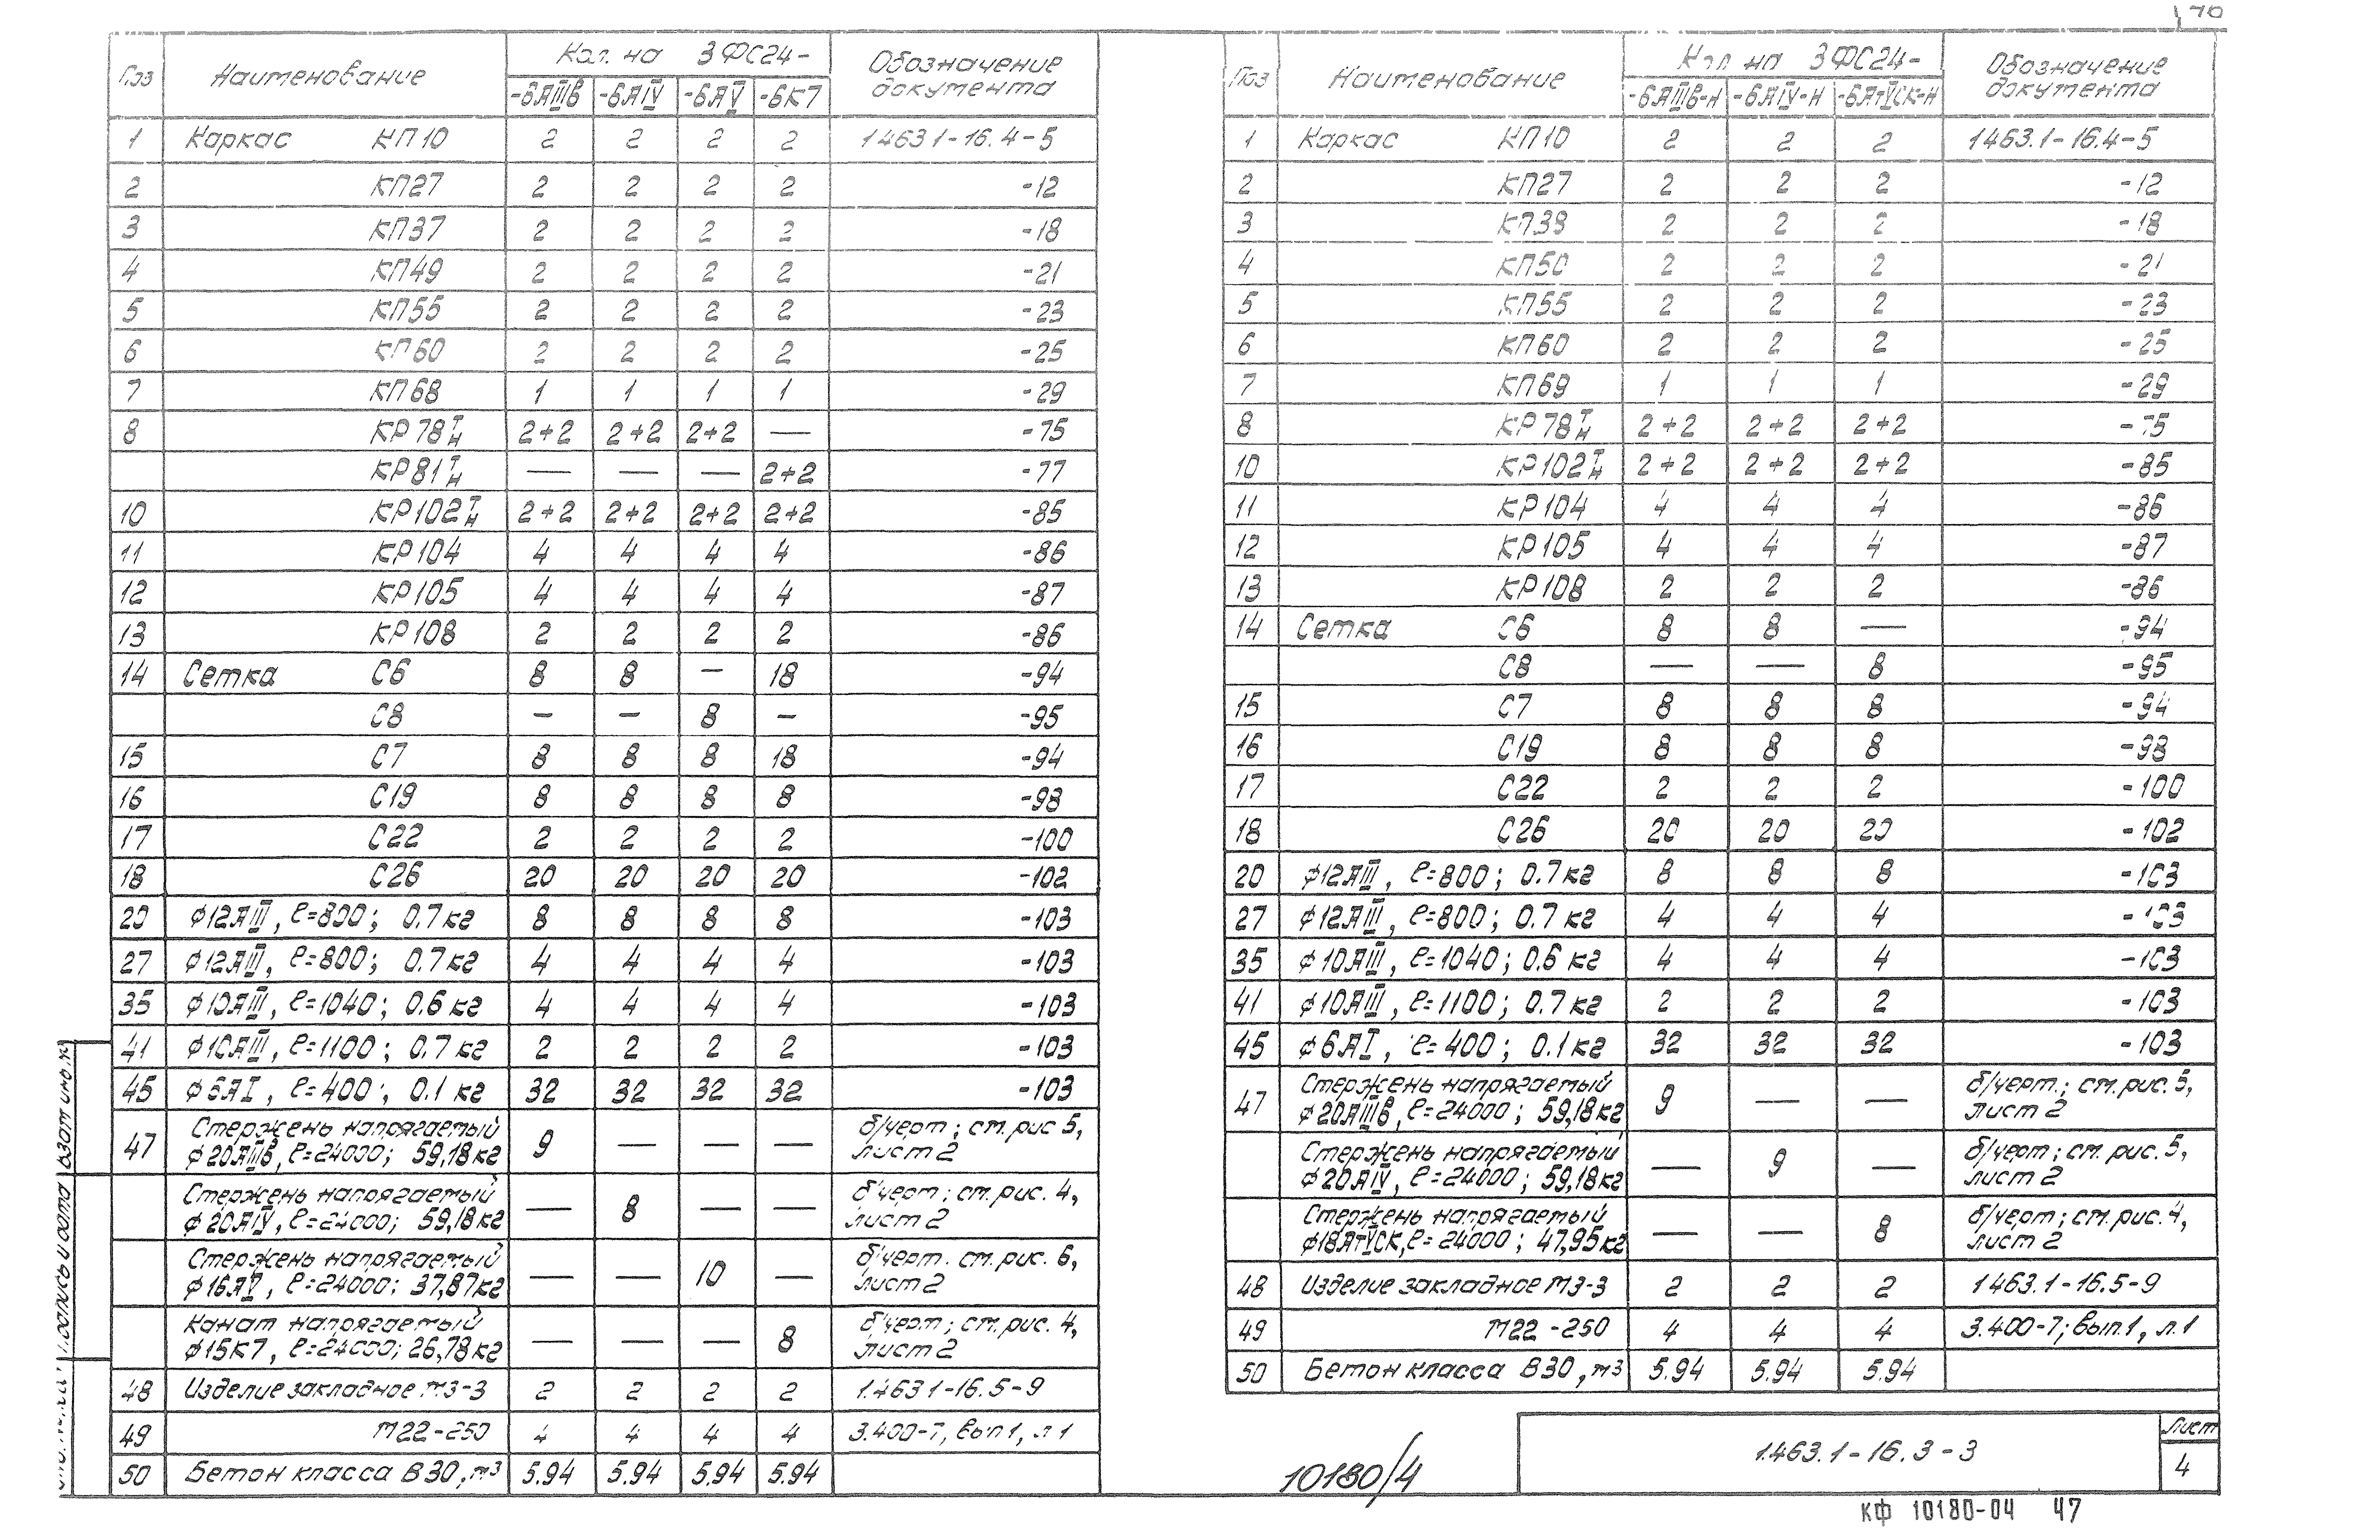 Поз Наименование Кол. на 3ФС24- Обозначение документа
-6АIIIв -6АIV -6АV -6К7
1 Каркас КП10 2 2 2 2 1463.1-16.4-5
2 КП27 2 2 2 2 -12
3 КП37 2 2 2 2 -18
4 КП49 2 2 2 2 -21
5 КП55 2 2 2 2 -23
6 КП60 2 2 2 2 -25
7 КП68 1 1 1 1 -29
8 КР78 т/н 2+2 2+2 2+2 — -75
КР81 т/н — — — 2+2 -77
10 КР102 т/н 2+2 2+2 2+2 2+2 -85
11 КР104 4 4 4 4 -86
12 КР105 4 4 4 4 -87
13 КР108 2 2 2 2 -86
14 Сетка С6 8 8 — 18 -94
С8 — — 8 — -95
15 С7 8 8 8 18 -94
16 С19 8 8 8 8 -98
17 С22 2 2 2 2 -100
18 С26 20 20 20 20 -102
20 ϕ12АIII, ℓ=800; 0.7кг 8 8 8 8 -103
27 ϕ12АIII, ℓ=800; 0.7кг 4 4 4 4 -103
35 ϕ10АIII, ℓ=1040; 0.6кг 4 4 4 4 -103
41 ϕ10АIII, ℓ=1100; 0.7кг 2 2 2 2 -103
45 ϕ6АI, ℓ=400; 0.1кг 32 32 32 32 -103
47 Стержень напрягаемый ϕ20АIIIв, ℓ=24000; 59,18кг 9 — — — б/черт; см. рис 5, лист 2
Стержень напрягаемый ϕ20АIV, ℓ=24000; 59,18кг — 8 — — б/черт; см. рис. 4, лист 2
Стержень напрягаемый ϕ16АV, ℓ=24000; 37,87кг — — 10 — б/черт. см. рис. 6, лист 2
Канат напрягаемый ϕ15К7, ℓ=24000; 26,78кг — — — 8 б/черт; см. рис. 4, лист 2
48 Изделие закладное МЗ-3 2 2 2 2 1.463.1-16.5-9
49 М22-250 4 4 4 4 3.400-7, вып 1, л 1
50 Бетон класса В30, м3 5.94 5.94 5.94 5.94
Поз Наименование Кол на 3ФС24- Обозначение документа
-6АIIIв-Н -6АIV-Н -6АтVСК-Н
1 Каркас КП10 2 2 2 1463.1-16.4-5
2 КП27 2 2 2 -12
3 КП38 2 2 2 -18
4 КП50 2 2 2 -21
5 КП55 2 2 2 -23
6 КП60 2 2 2 -25
7 КП69 1 1 1 -29
8 КР78 т/н 2+2 2+2 2+2 -75
10 КР102 т/н 2+2 2+2 2+2 -85
11 КР104 4 4 4 -86
12 КР105 4 4 4 -87
13 КР108 2 2 2 -86
14 Сетка С6 8 8 — -94
С8 — — 8 -95
15 С7 8 8 8 -94
16 С19 8 8 8 -98
17 С22 2 2 2 -100
18 С26 20 20 20 -102
20 ϕ12АIII, ℓ=800; 0.7кг 8 8 8 -103
27 ϕ12АIII, ℓ=800; 0.7кг 4 4 4 -103
35 ϕ10АIII, ℓ=1040; 0.6кг 4 4 4 -103
41 ϕ10АIII, ℓ=1100; 0.7кг 2 2 2 -103
45 ϕ6АI, ℓ=400; 0.1кг 32 32 32 -103
47 Стержень напрягаемый ϕ20АIIIв, ℓ=24000; 59,18кг 9 — — б/черт.; см. рис. 5, лист 2
Стержень напрягаемый ϕ20АIV, ℓ=24000; 59,18кг — 9 — б/черт; см. рис. 5, лист 2
Стержень напрягаемый ϕ18АтVСК, ℓ=24000; 47,95кг — — 8 б/черт; см. рис. 4, лист 2
48 Изделие закладное МЗ-3 2 2 2 1463.1-16.5-9
49 М22-250 4 4 4 3.400-7; вып. 1, л. 1
50 Бетон класса В30, м3 5.94 5.94 5.94
10180/4
1.463.1-16.3-3
Лист
4
КФ 10180-04 47
Взам инв. №
Подпись и дата